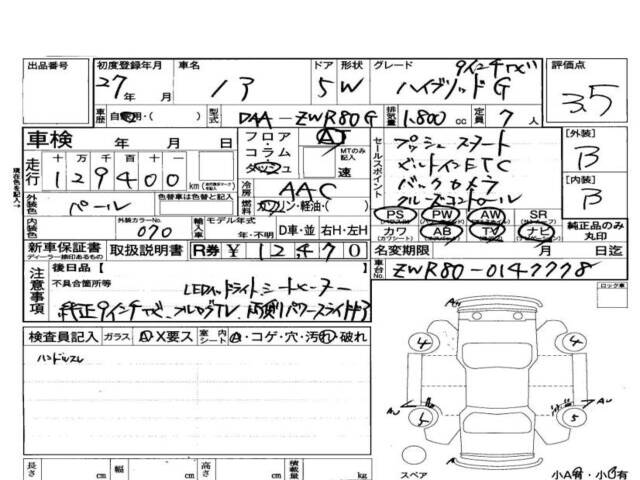 出品番号 初度登録年月 車名 ドア 形状 グレード 評価点
27年 月 ノア 5 W 9インチナビ ハイブリッドG 3.5
車歴 自家用・( ) 型式 DAA-ZWR80G 排気量 1,800 cc 定員 7 人
車検 年 月 日 フロア コラム ダッシュ AT MTのみ記入 速
走行 十 万 千 百 十 一
129400 km
冷房 AAC
燃料 ガソリン・軽油・( )
外装色 パール 色替車は色替と記入
内装色 外装カラーNo. 070 輸入車 モデル年式 年・不明 D車・並 右H・左H
セールスポイント プッシュスタート
ビルトインETC
バックカメラ
クルーズコントロール
PS PW AW SR
カワ AB TV ナビ
純正品のみ丸印
[外装] B
[内装] B
新車保証書 取扱説明書 R券 ¥ 12,470
ディーラー捺印あるもの
名変期限 月 日迄
車台No. ZWR80-0147778
現在色を記入→
注意事項 後日品 [ ]
不具合箇所等 LEDヘッドライト シートヒーター
純正9インチナビ、フルセグTV、両側パワースライドドア
ロック車
検査員記入 ガラス A・X要ス 室内シート A・コゲ・穴・汚・破れ
ハンドルスレ
AU
4 4
AU AU
5 5
A
スペア
小A有・小キズ有
長さ cm 幅 cm 高さ cm 積載量 kg